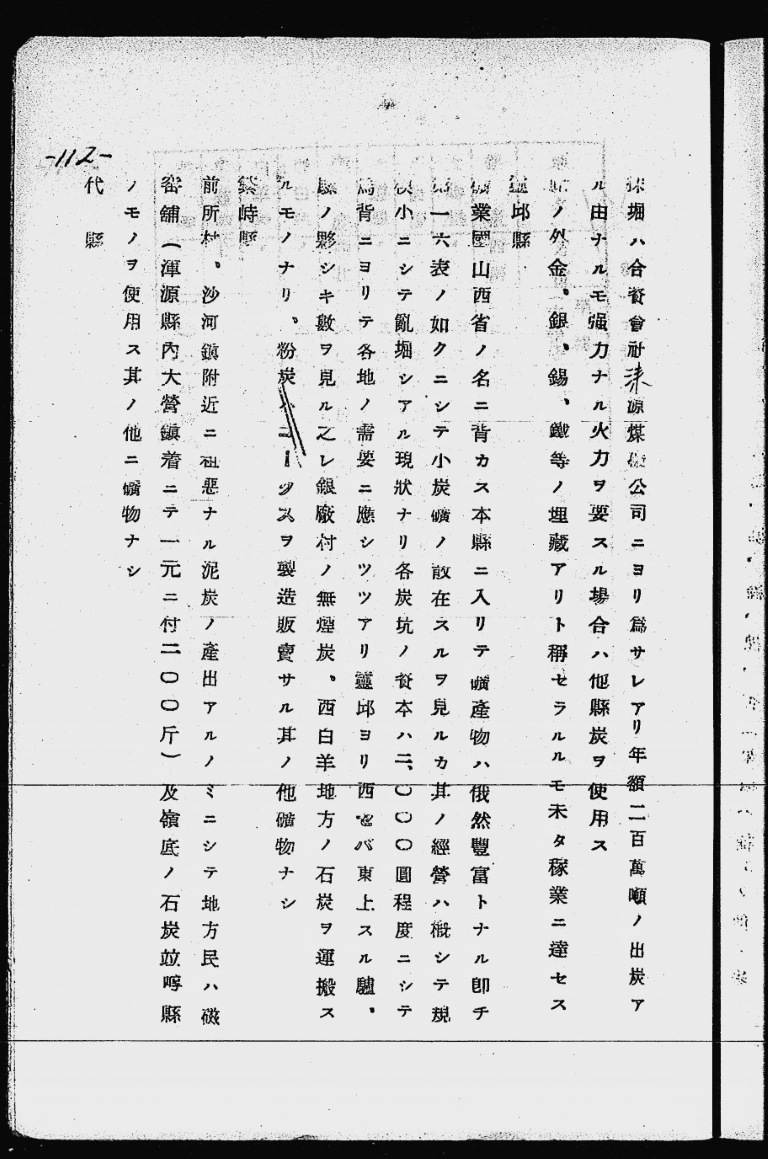 -112-
採堀ハ合資會社涞源煤礦公司ニヨリ爲サレアリ年額二百萬噸ノ出炭ア
ル由ナルモ强力ナル火力ヲ要スル場合ハ他縣炭ヲ使用ス
ノ外金、銀、錫、鐵等ノ埋藏アリト稱セラルルモ未タ稼業ニ達セス
靈邱縣
礦業國山西省ノ名ニ背カス本縣ニ入リテ礦產物ハ俄然豐富トナル卽チ
第一六表ノ如クニシテ小炭礦ノ散在スルヲ見ルカ其ノ經營ハ槪シテ規
模小ニシテ亂堀シアル現狀ナリ各炭坑ノ資本ハ二、〇〇〇圓程度ニシテ
馬背ニヨリテ各地ノ需要ニ應シツツアリ靈邱ヨリ西セバ東上スル驢、
騾ノ夥シキ數ヲ見ル之レ銀廠村ノ無煙炭、西白羊地方ノ石炭ヲ運搬ス
ルモノナリ、粉炭ハコークスヲ製造販賣サル其ノ他礦物ナシ
繁峙縣
前所村、沙河鎭附近ニ粗惡ナル泥炭ノ產出アルノミニシテ地方民ハ磁
窰舖(渾源縣內大營鎭着ニテ一元ニ付二〇〇斤)及嶺底ノ石炭竝崞縣
ノモノヲ使用ス其ノ他ニ礦物ナシ
代縣